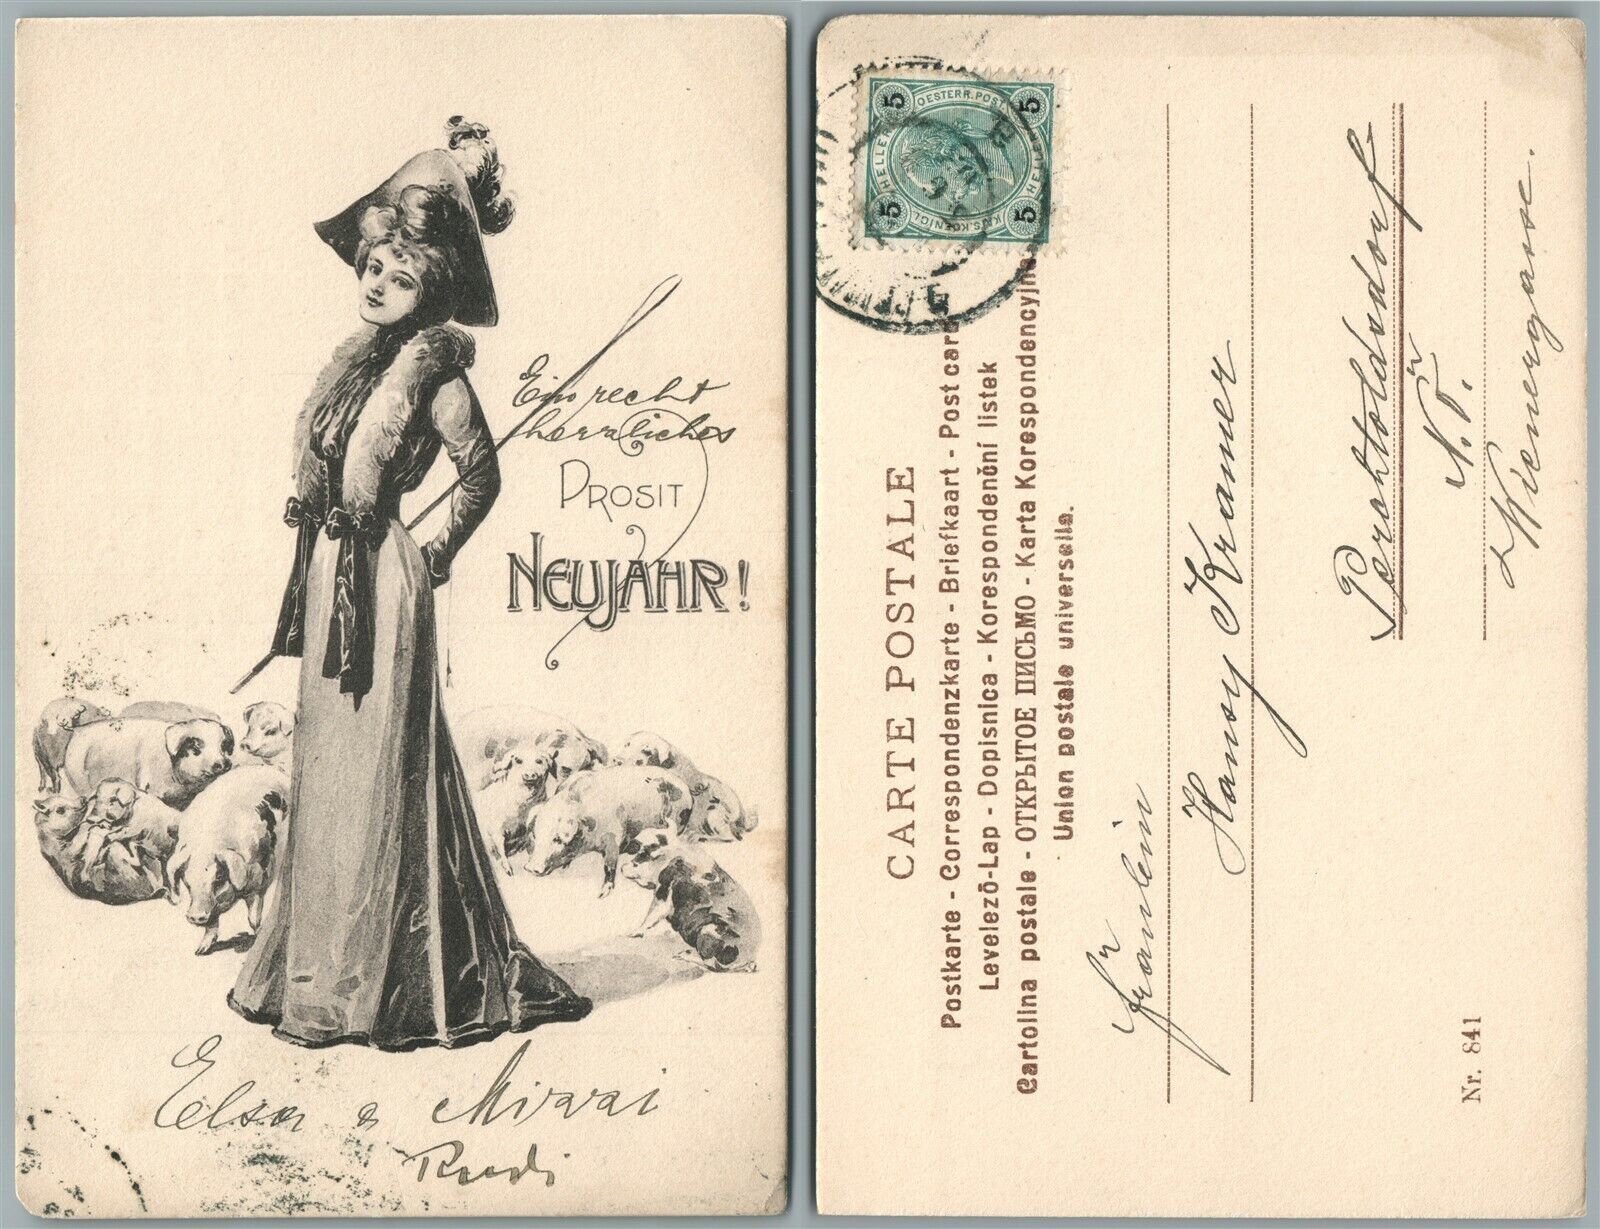 Ein recht
herzliches
PROSIT
NEUJAHR!
Elsa & Mizzi
Rudi
5 OESTERR. POST. 5
HELLER HELLER
5 KAIS. KOENIGL. 5
CARTE POSTALE
Postkarte - Correspondenzkarte - Briefkaart - Post card
Levelező-Lap - Dopisnica - Korespondenční listek
Cartolina postale - ОТКРЫТОЕ ПИСЬМО - Karta Korespondencyjna
Union postale universelle.
Fräulein
Hansy Kramer
Perchtoldsdorf
N.Ö.
Wienergasse.
Nr. 841